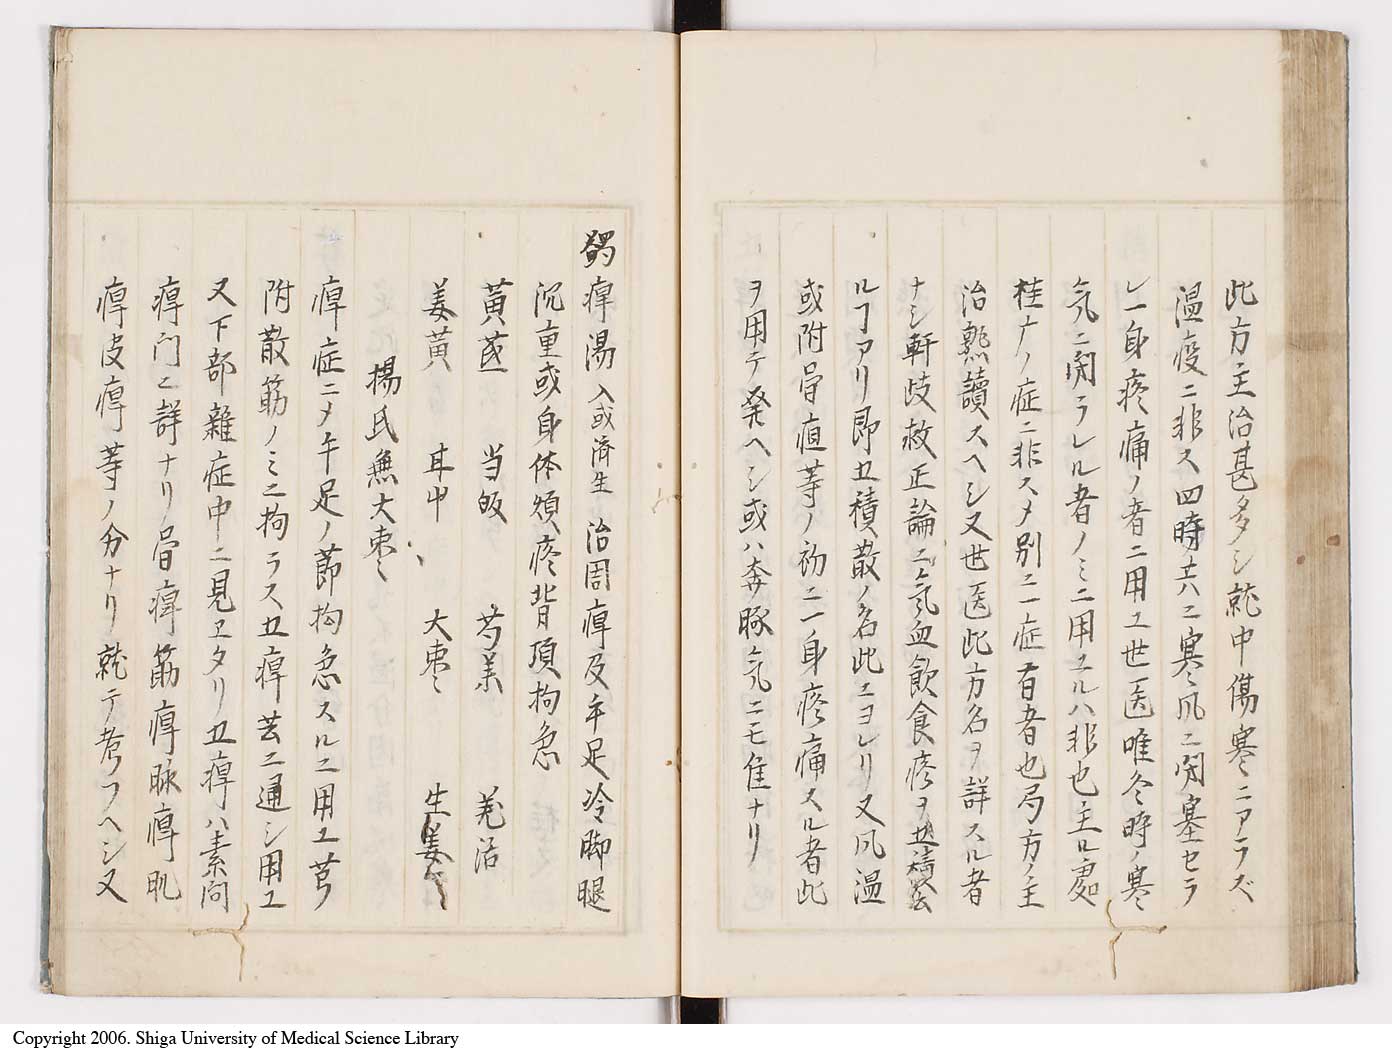 此方主治甚多シ就中傷寒ニアラズ
温疫ニ非ス四時共ニ寒風ニ閉塞セラ
レ一身疼痛ノ者ニ用ユ世医唯冬時ノ寒
気ニ閉ラレル者ノミニ用ユルハ非也主ル処
桂麻ノ症ニ非スメ別ニ一症有者也局方ノ主
治熟讀スヘシ又世医此方名ヲ詳スル者
ナシ軒岐救正論ニ気血飲食痰ヲ五積
ルヿアリ即五積散ノ名此ニヨレリ又風温
或附骨疽等ノ初ニ一身疼痛スル者此
ヲ用テ発ヘシ或ハ奔豚気ニモ佳ナリ
蠲痺湯 入或済生 治周痺及手足冷脚腿
沉重或身体煩疼背項拘急
黄芪 当皈 芍薬 羌活
姜黄 甘中 大棗 生姜
楊氏無大棗
痺症ニメ手足ノ節拘急スルニ用ユ芍
附散筋ノミニ拘ラス五痺共ニ通シ用ユ
又下部雜症中ニ見ヱタリ五痺ハ素問
痺門ニ詳ナリ骨痺筋痺脉痺肌
痺皮痺等ノ分ナリ就テ考フヘシ又
Copyright 2006. Shiga University of Medical Science Library